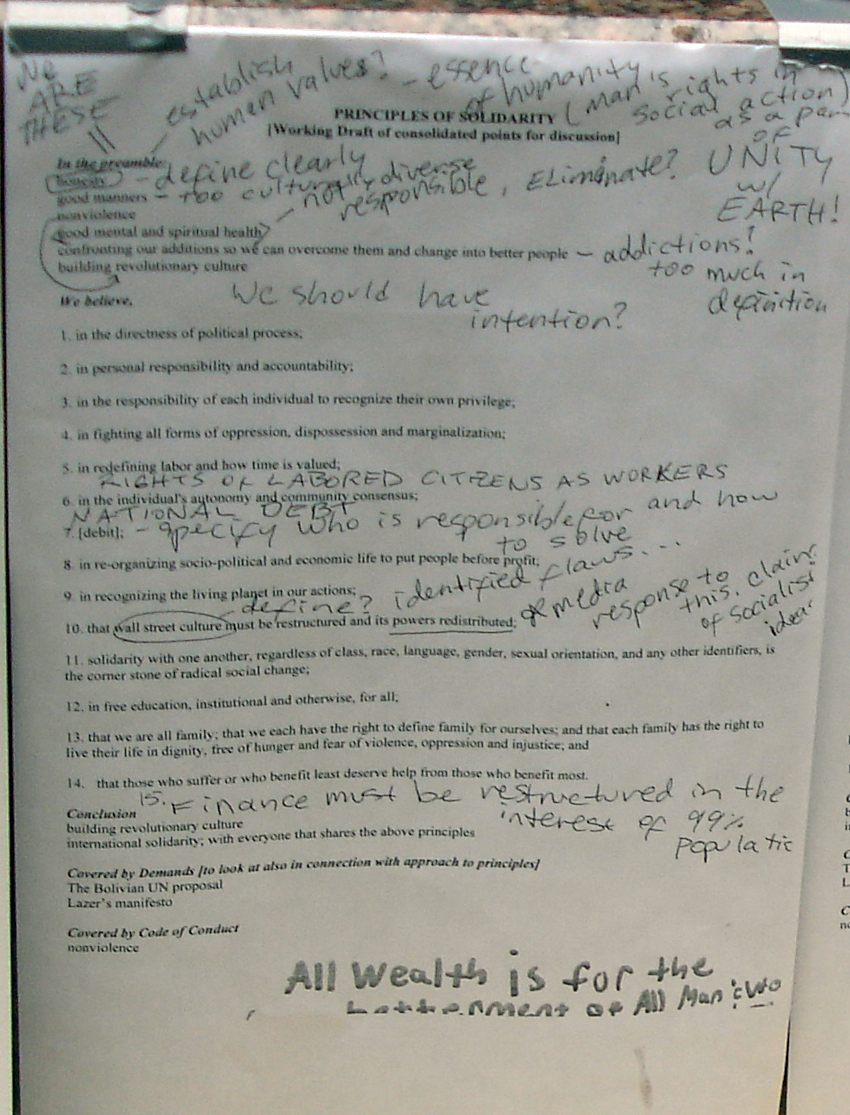 We
ARE
THESE
- establish
human values? - essence
of humanity (man's rights in
social action)
as a part
OF
UNITY
w/
EARTH!
PRINCIPLES OF SOLIDARITY
[Working Draft of consolidated points for discussion]
In the preamble:
honesty - define clearly
good manners - too culturally diverse
- not responsible, ELiminate?
nonviolence
good mental and spiritual health
confronting our additions so we can overcome them and change into better people - addictions?
too much in
definition
building revolutionary culture
We believe,
We should have
intention?
1. in the directness of political process;
2. in personal responsibility and accountability;
3. in the responsibility of each individual to recognize their own privilege;
4. in fighting all forms of oppression, dispossession and marginalization;
5. in redefining labor and how time is valued;
RIGHTS OF LABORED CITIZENS AS WORKERS
6. in the individual's autonomy and community consensus;
NATIONAL DEBT
7. [debit]; - specify who is responsible for and how
to solve
8. in re-organizing socio-political and economic life to put people before profit;
9. in recognizing the living planet in our actions;
- define? identified flaws...
10. that wall street culture must be restructured and its powers redistributed;
media
response to
this. claim
of socialist
ideas
11. solidarity with one another, regardless of class, race, language, gender, sexual orientation, and any other identifiers, is
the corner stone of radical social change;
12. in free education, institutional and otherwise, for all;
13. that we are all family; that we each have the right to define family for ourselves; and that each family has the right to
live their life in dignity, free of hunger and fear of violence, oppression and injustice; and
14. that those who suffer or who benefit least deserve help from those who benefit most.
15. Finance must be restructured in the
interest of 99%
populatic
Conclusion
building revolutionary culture
international solidarity; with everyone that shares the above principles
Covered by Demands [to look at also in connection with approach to principles]
The Bolivian UN proposal
Lazer's manifesto
Covered by Code of Conduct
nonviolence
All Wealth is for the
betterment of All Man